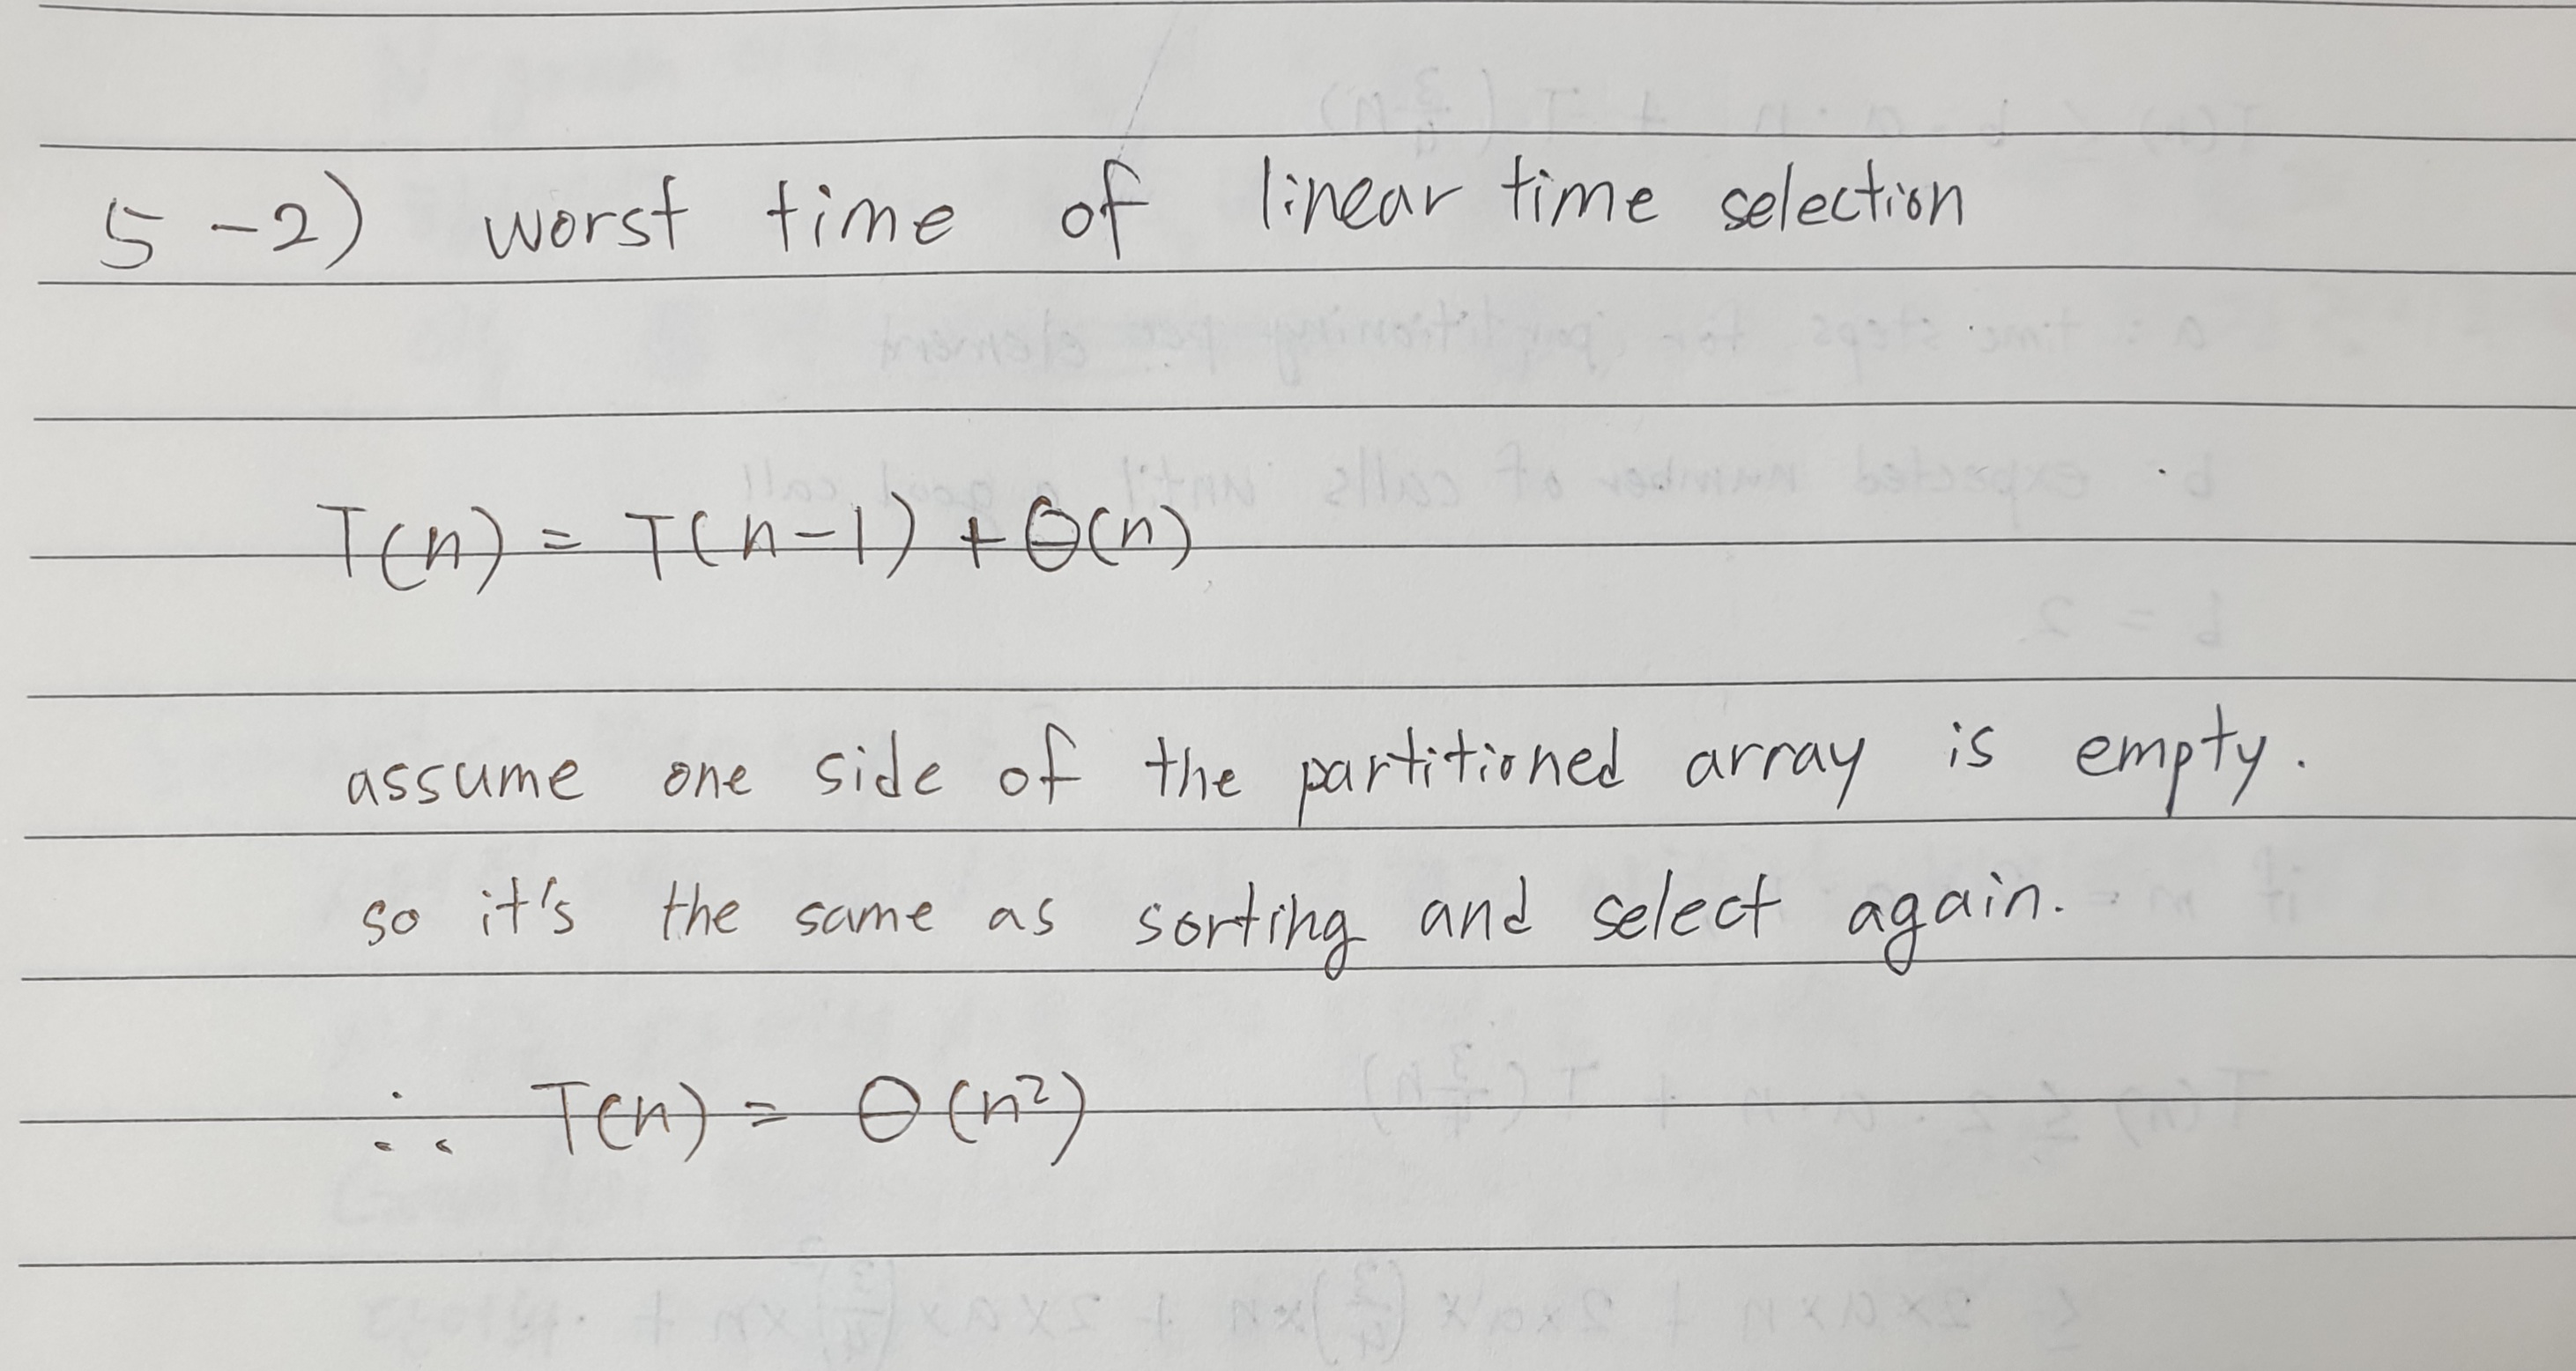 5-2) worst time of linear time selection
T(n) = T(n-1) + Θ(n)
assume one side of the partitioned array is empty.
so it's the same as sorting and select again.
∴ T(n) = Θ(n²)